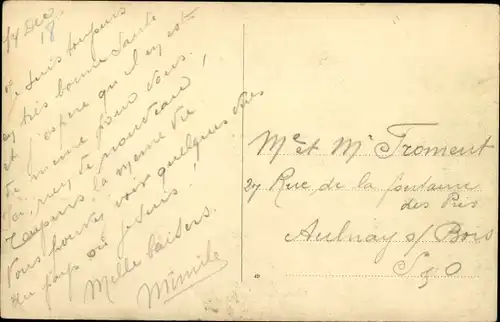 14 Dec 18
Je suis toujours
en très bonne Santé
et j'espère qu'il en est
de même pour vous.
rien de nouveau,
Toujours la même vie
Vous pouvez voir quelques vues
du pays ou je suis!
Mille baisers.
Mimile
Me et Mr Froment
27 Rue de la fontaine
des Prés
Aulnay s/ Bois
S & O